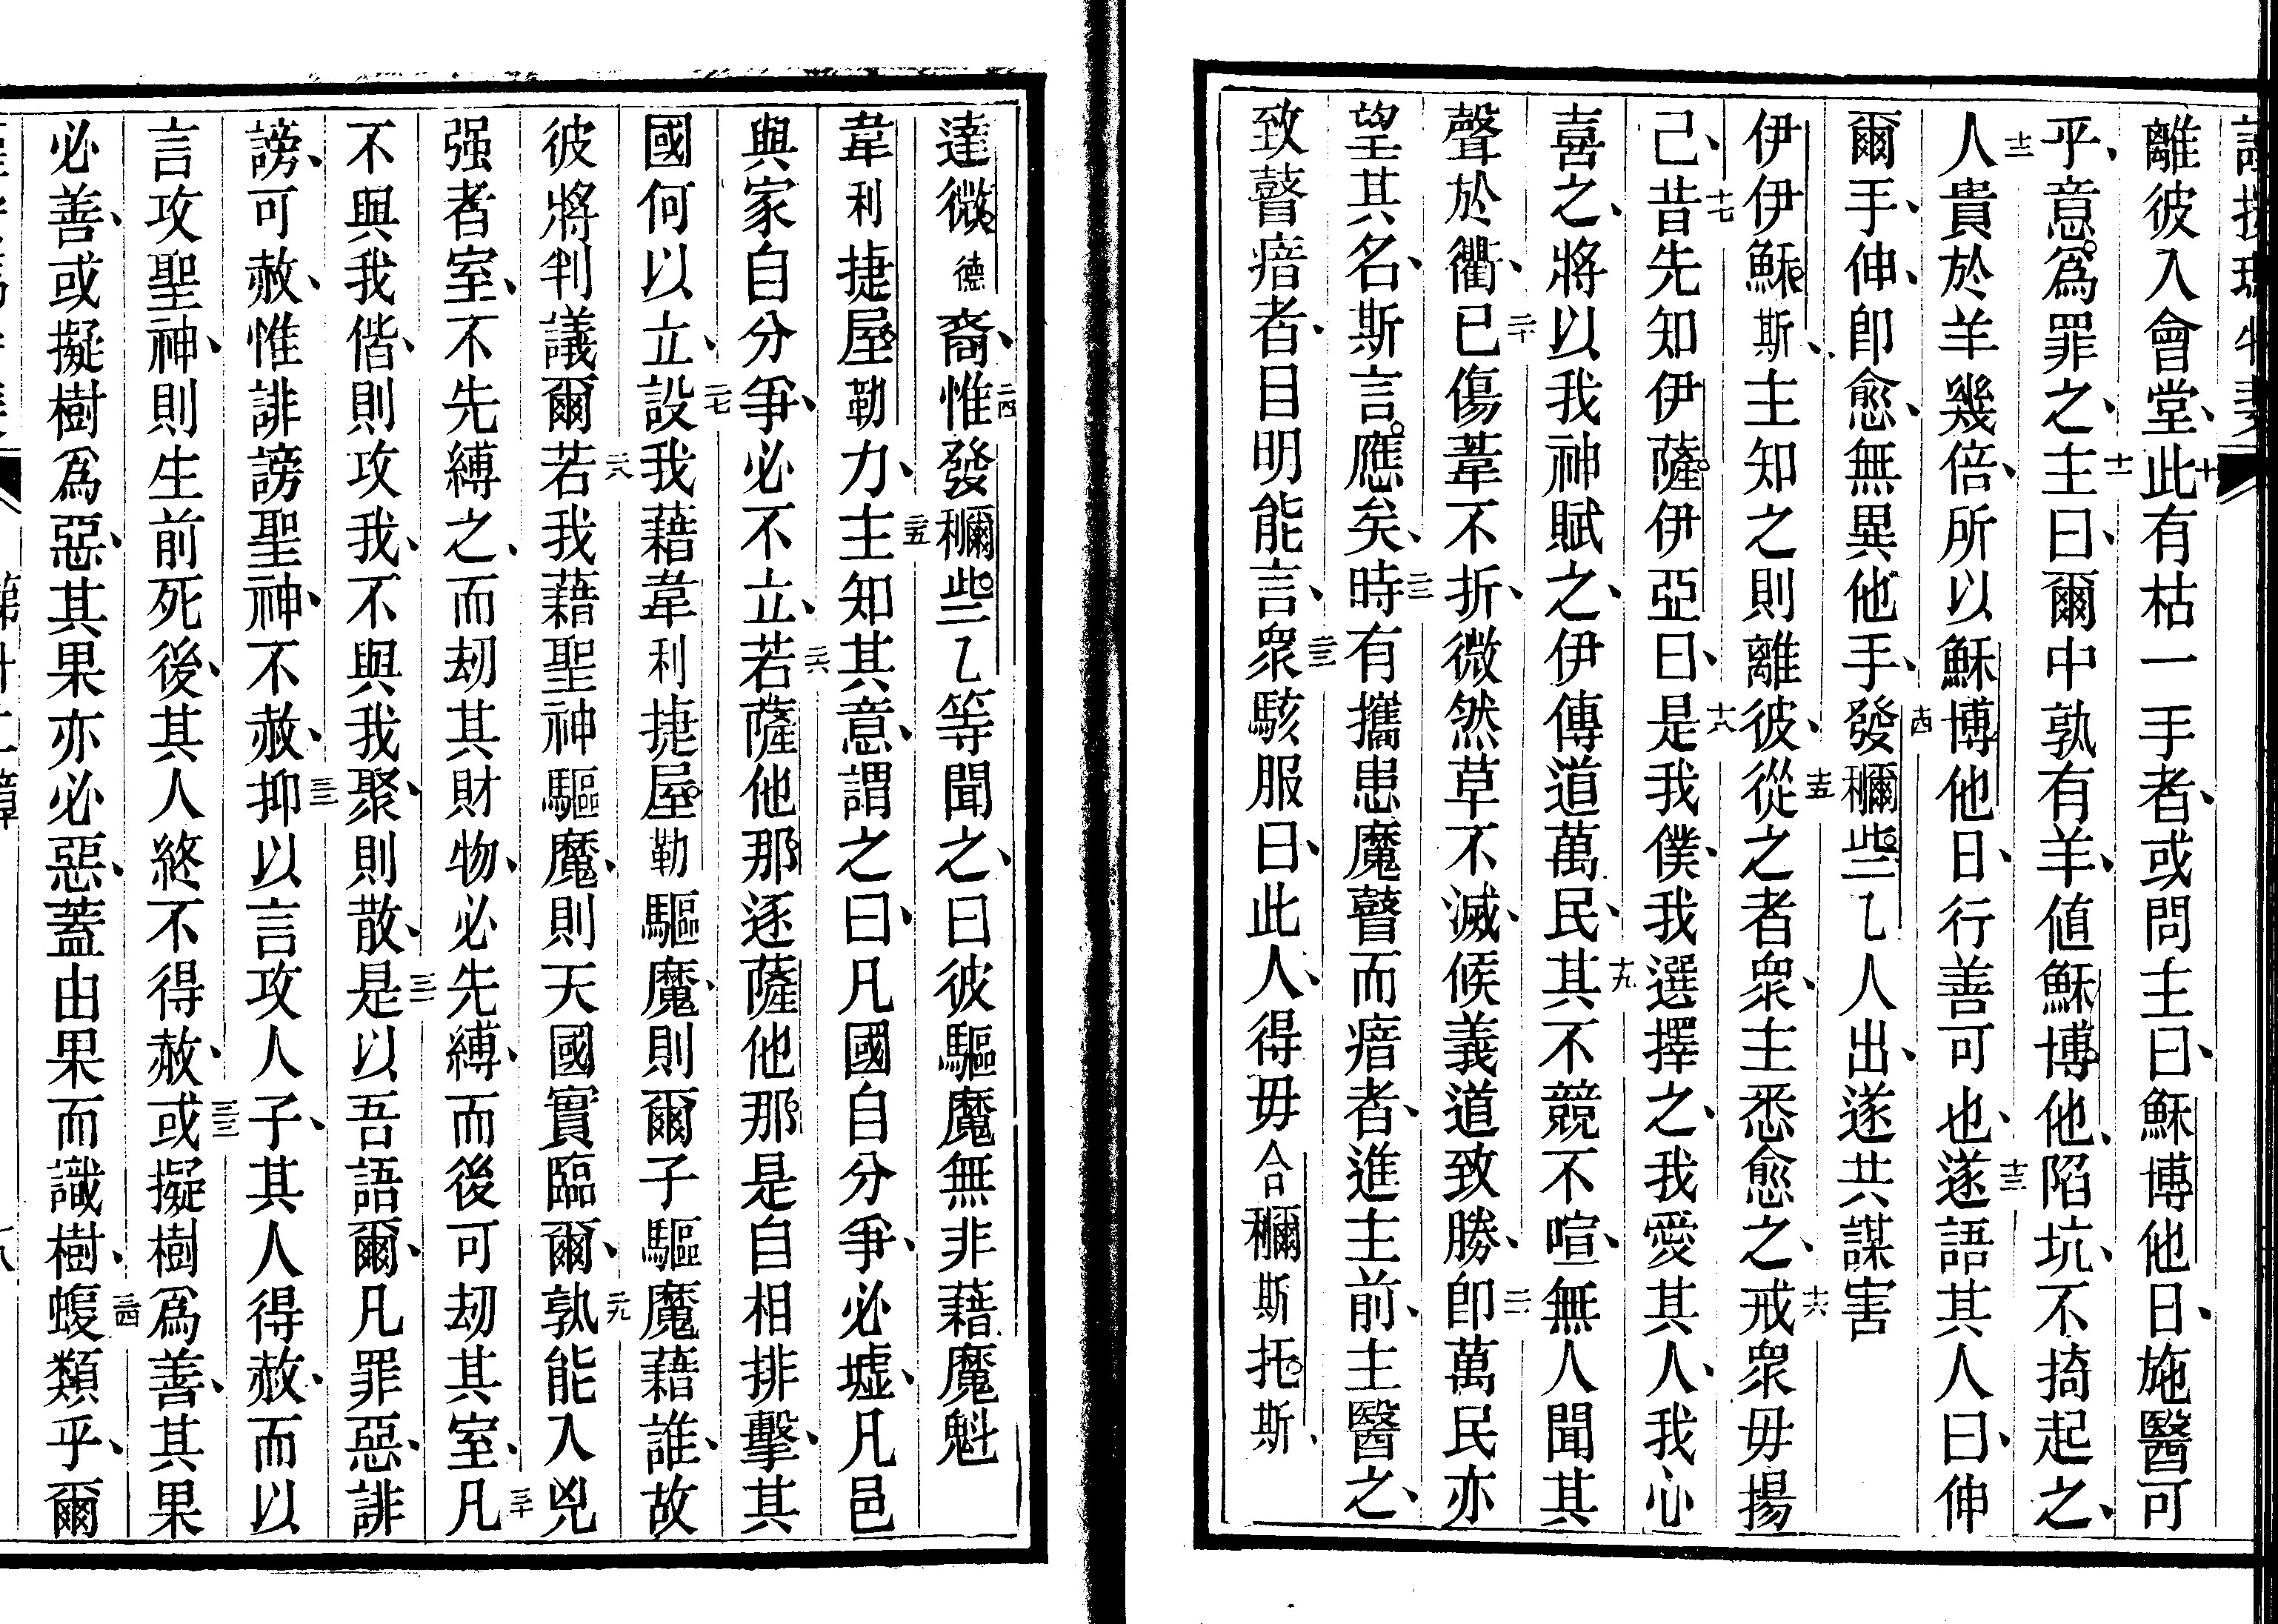 離彼入會堂、十此有枯一手者、或問主曰、穌博他日、施醫可
乎、意。爲罪之、十一主曰、爾中孰有羊、値穌博他、陷坑、不掎起之、
十二人貴於羊幾倍、所以穌博他日、行善可也、十三遂語其人曰、伸
爾手、伸、卽愈、無異他手、十四發穪些乙人出、遂共謀害
伊伊穌斯、主知之則離彼、十五從之者衆、主悉愈之、十六戒衆毋揚
己、十七昔先知伊薩伊亞曰、十八是我僕、我選擇之、我愛其人、我心
喜之、將以我神賦之、伊傳道萬民、十九其不競不喧、無人聞其
聲於衢、二十已傷葦不折、微然草不滅、候義道致勝、二一卽萬民亦
望其名、斯言。應矣、二二時有攜患魔瞽而瘖者、進主前、主醫之、
致瞽瘖者、目明能言、二三衆駭服曰、此人、得毋合穪斯托斯、
達微德裔、二四惟發穪些乙等聞之、曰彼驅魔無非藉魔魁
韋利捷屋勒力、二五主知其意、謂之曰、凡國自分爭、必墟、凡邑
與家自分爭、必不立、二六若薩他那逐薩他那是自相排擊、其
國何以立、二七設我藉韋利捷屋勒驅魔、則爾子驅魔藉誰、故
彼將判議爾、二八若我藉聖神驅魔、則天國實臨爾、二九孰能入兇
强者室、不先縛之、而刼其財物、必先縛、而後可刼其室、三十凡
不與我偕、則攻我、不與我聚、則散、三一是以吾語爾、凡罪惡、誹
謗、可赦、惟誹謗聖神、不赦、三二抑以言攻人子、其人得赦、而以
言攻聖神、則生前死後、其人終不得赦、三三或擬樹爲善、其果
必善、或擬樹爲惡、其果亦必惡、蓋由果而識樹、三四蝮類乎、爾